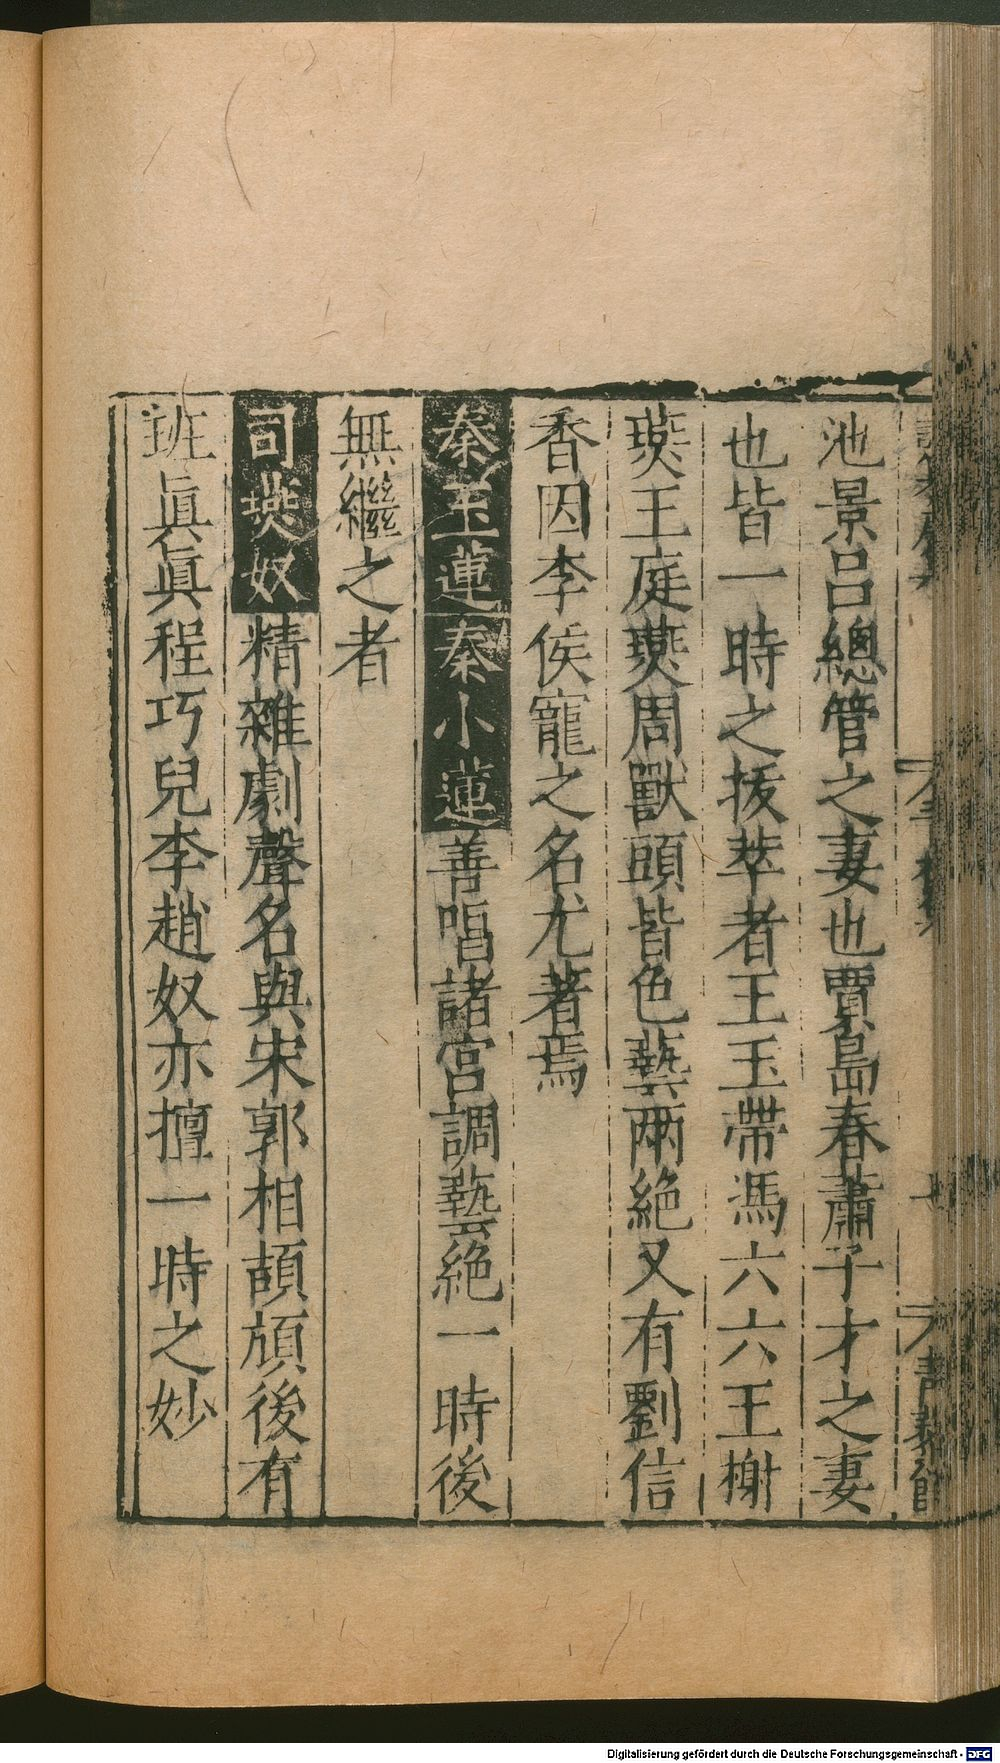 池景呂總管之妻也賈島春蕭子才之妻
也皆一時之拔萃者王玉帶馮六六王榭
燕王庭燕周獸頭皆色藝兩絶又有劉信
香因李侯寵之名尤著焉
秦玉蓮秦小蓮善唱諸宮調藝絶一時後
無繼之者
司燕奴精雜劇聲名與宋郭相頡頏後有
班眞眞程巧兒李趙奴亦擅一時之妙
Digitalisierung gefördert durch die Deutsche Forschungsgemeinschaft - DFG